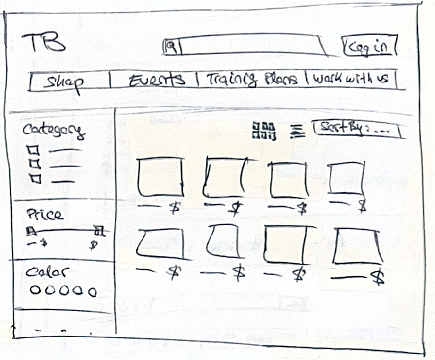 TB
Log in
Shop | Events | Training Plans | Work with us
Category
Sort By: ....
$ $ $ $
Price
$ $
$ $ $ $
Color